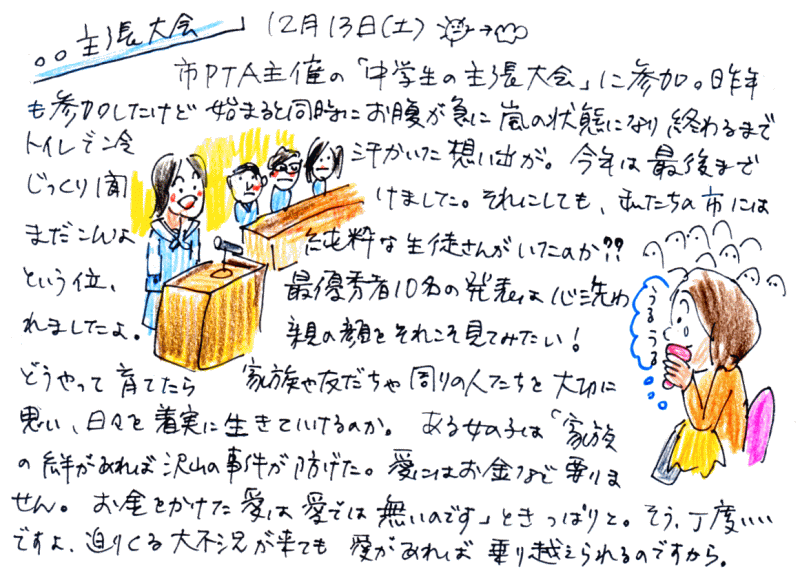 主張大会 12月13日(土)
市PTA主催の「中学生の主張大会」に参加。昨年
も参加したけど 始まると同時に お腹が急に 嵐の状態になり 終わるまで
トイレで冷 汗かいた想い出が。今年は最後まで
じっくり聞 けました。それにしても、私たちの市には
まだこんな 純粋な生徒さんがいたのか??
という位、 最優秀者10名の発表は 心洗わ
れましたよ。 親の顔をそれこそ見てみたい!
うるうる
どうやって育てたら 家族や友だちや周りの人たちを大切に
思い、日々を着実に生きていけるのか。 ある女の子は「家族
の絆があれば沢山の事件が防げた。愛にはお金など要りま
せん。 お金をかけた愛は愛では無いのです」ときっぱりと。そう、丁度いい
ですよ、迫りくる大不況が来ても 愛があれば 乗り越えられるのですから。